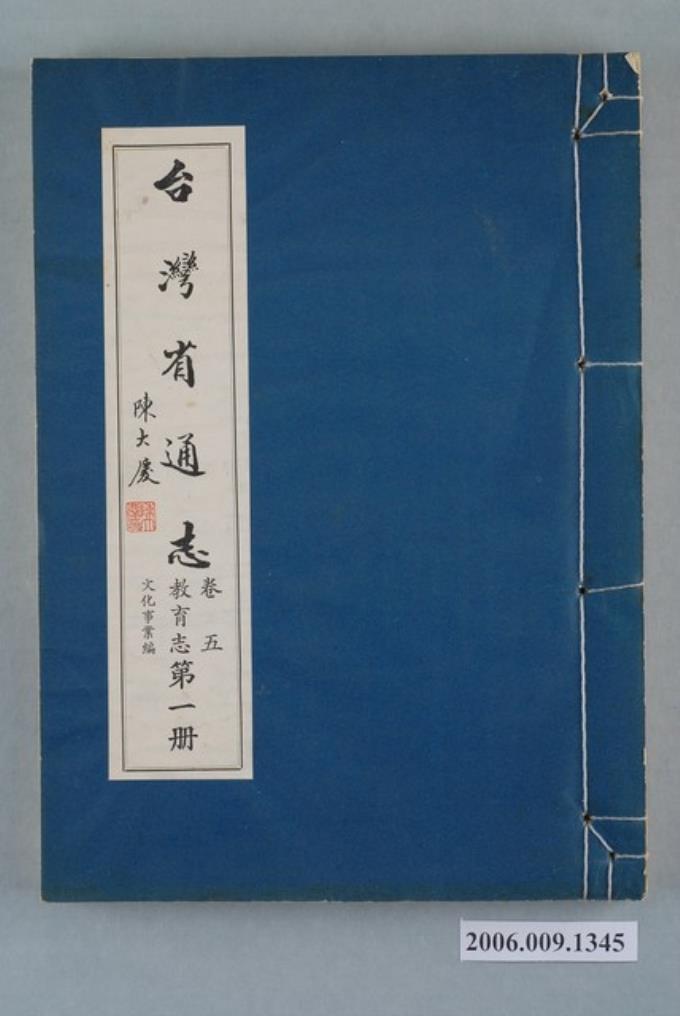 台灣省通志
卷五
教育志第一册
文化事業編
陳大慶
2006.009.1345